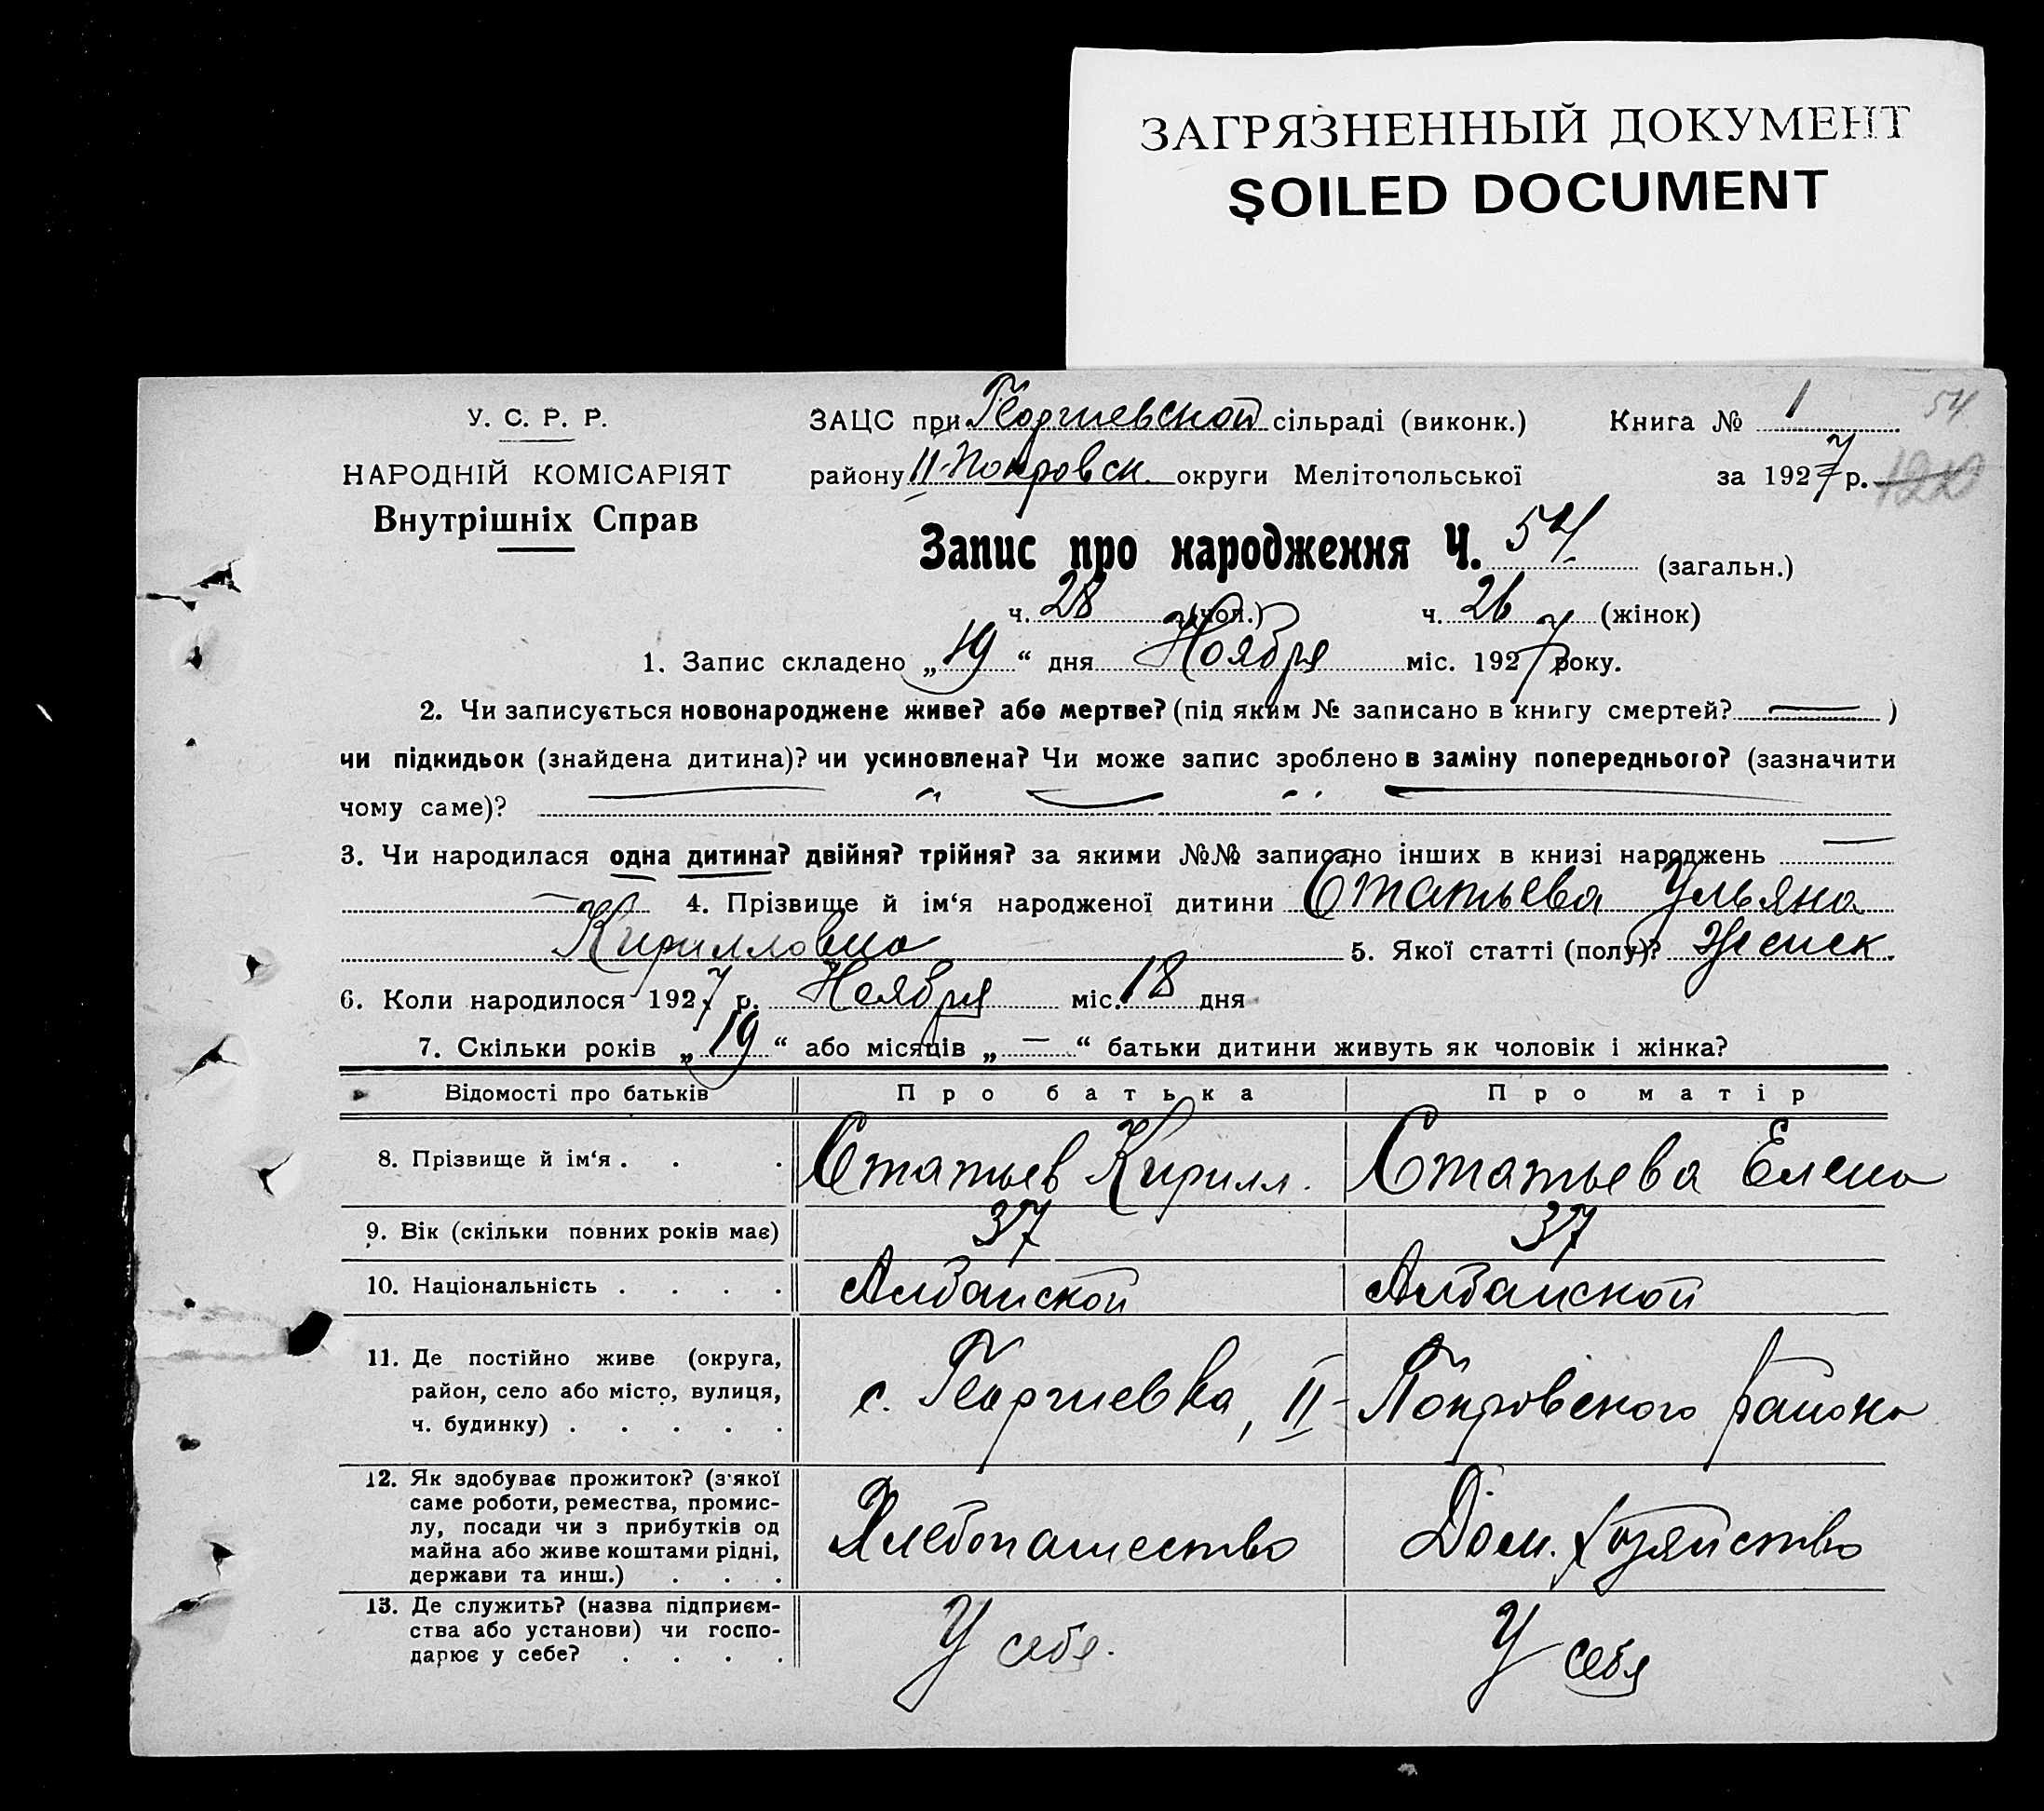 ЗАГРЯЗНЕННЫЙ ДОКУМЕНТ
SOILED DOCUMENT
У. С. Р. Р.
НАРОДНІЙ КОМІСАРІЯТ
Внутрішніх Справ
ЗАЦС при Георгиевской сільраді (виконк.) Книга № 1 54
району II-Покровск. округи Мелітопольської за 1927 р. 120
Запис про народження Ч. 54 (загальн.)
ч. 28 (чол.) ч. 26 (жінок)
1. Запис складено „19“ дня Ноября міс. 1927 року.
2. Чи записується новонароджене живе? або мертве? (під яким № записано в книгу смертей? — )
чи підкидьок (знайдена дитина)? чи усиновлена? Чи може запис зроблено в заміну попереднього? (зазначити
чому саме)?
3. Чи народилася одна дитина? двійня? трійня? за якими №№ записано інших в книзі народжень —
— 4. Прізвище й ім‘я народженої дитини Статьева Ульяна
Кирилловна 5. Якої статті (полу)? женск.
6. Коли народилося 1927 р. Ноября міс. 18 дня
7. Скільки років „19“ або місяців „—“ батьки дитини живуть як чоловік і жінка?
Відомості про батьків Про батька Про матір
8. Прізвище й ім‘я . . . Статьев Кирилл. Статьева Елена
9. Вік (скільки повних років має) 37 37
10. Національність . . . . Албанской Албанской
11. Де постійно живе (округа,
район, село або місто, вулиця,
ч. будинку) . . . . .
с. Георгиевка, II-Покровского района
12. Як здобуває прожиток? (з якої
саме роботи, ремества, промис-
лу, посади чи з прибутків од
майна або живе коштами рідні,
держави та инш.) . . .
Хлебопашество Дом. хозяйство
13. Де служить? (назва підприєм-
ства або установи) чи госпо-
дарює у себе? . . . .
У себя. У себя